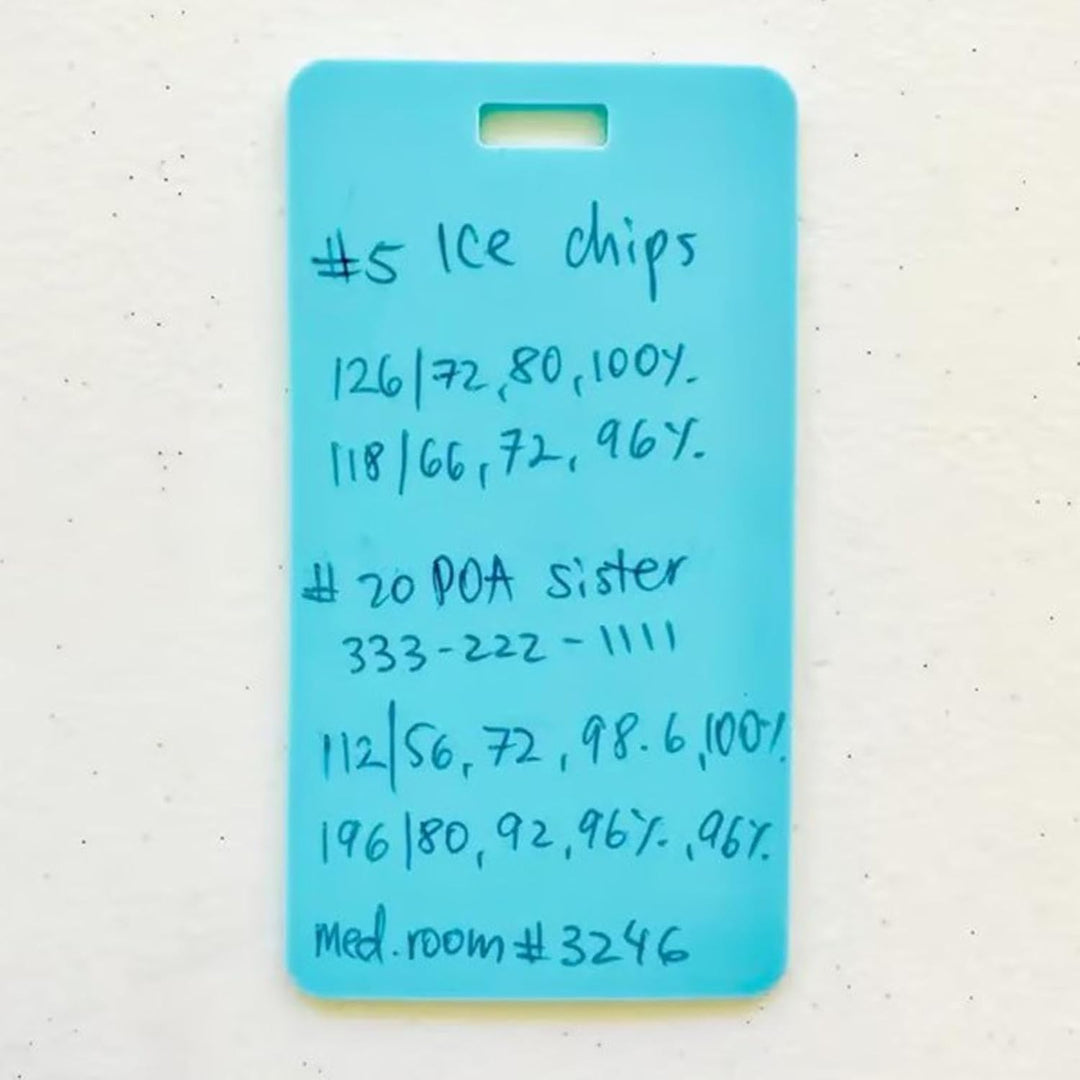 #5 Ice chips
126/72, 80, 100%
118/66, 72, 96%
#20 POA sister
333-222-1111
112/56, 72, 98.6, 100%
196/80, 92, 96%, 96%
Med. room #3246